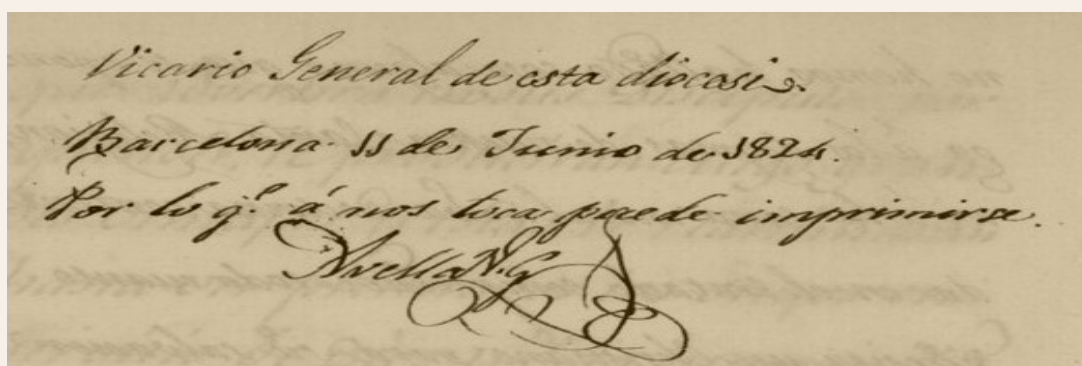 Vicario General de esta diocesi.
Barcelona 11 de Junio de 1824.
Por lo q.e á nos toca puede imprimirse.
Avella V. G.